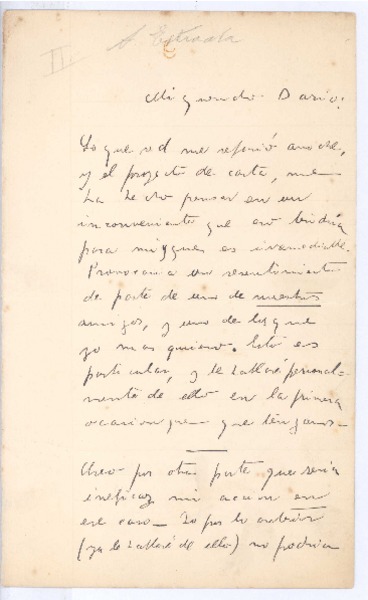 III
A. Estrada
Mi querido Darío:
Lo que vd me refirió anoche,
y el proyecto de carta, me
ha hecho pensar en un
inconveniente que eso tendría
para mí, y que es irremediable.
Provocaria un resentimiento
de parte de uno de nuestros
amigos, y uno de los que
yo mas quiero. Esto es
particular, y le hablaré personal-
mente de ello en la primera
ocasion que tengamos—
Creo por otra parte que seria
ineficaz mi accion en
ese caso— Yo por lo
(ya le hablaré de ello) no podria